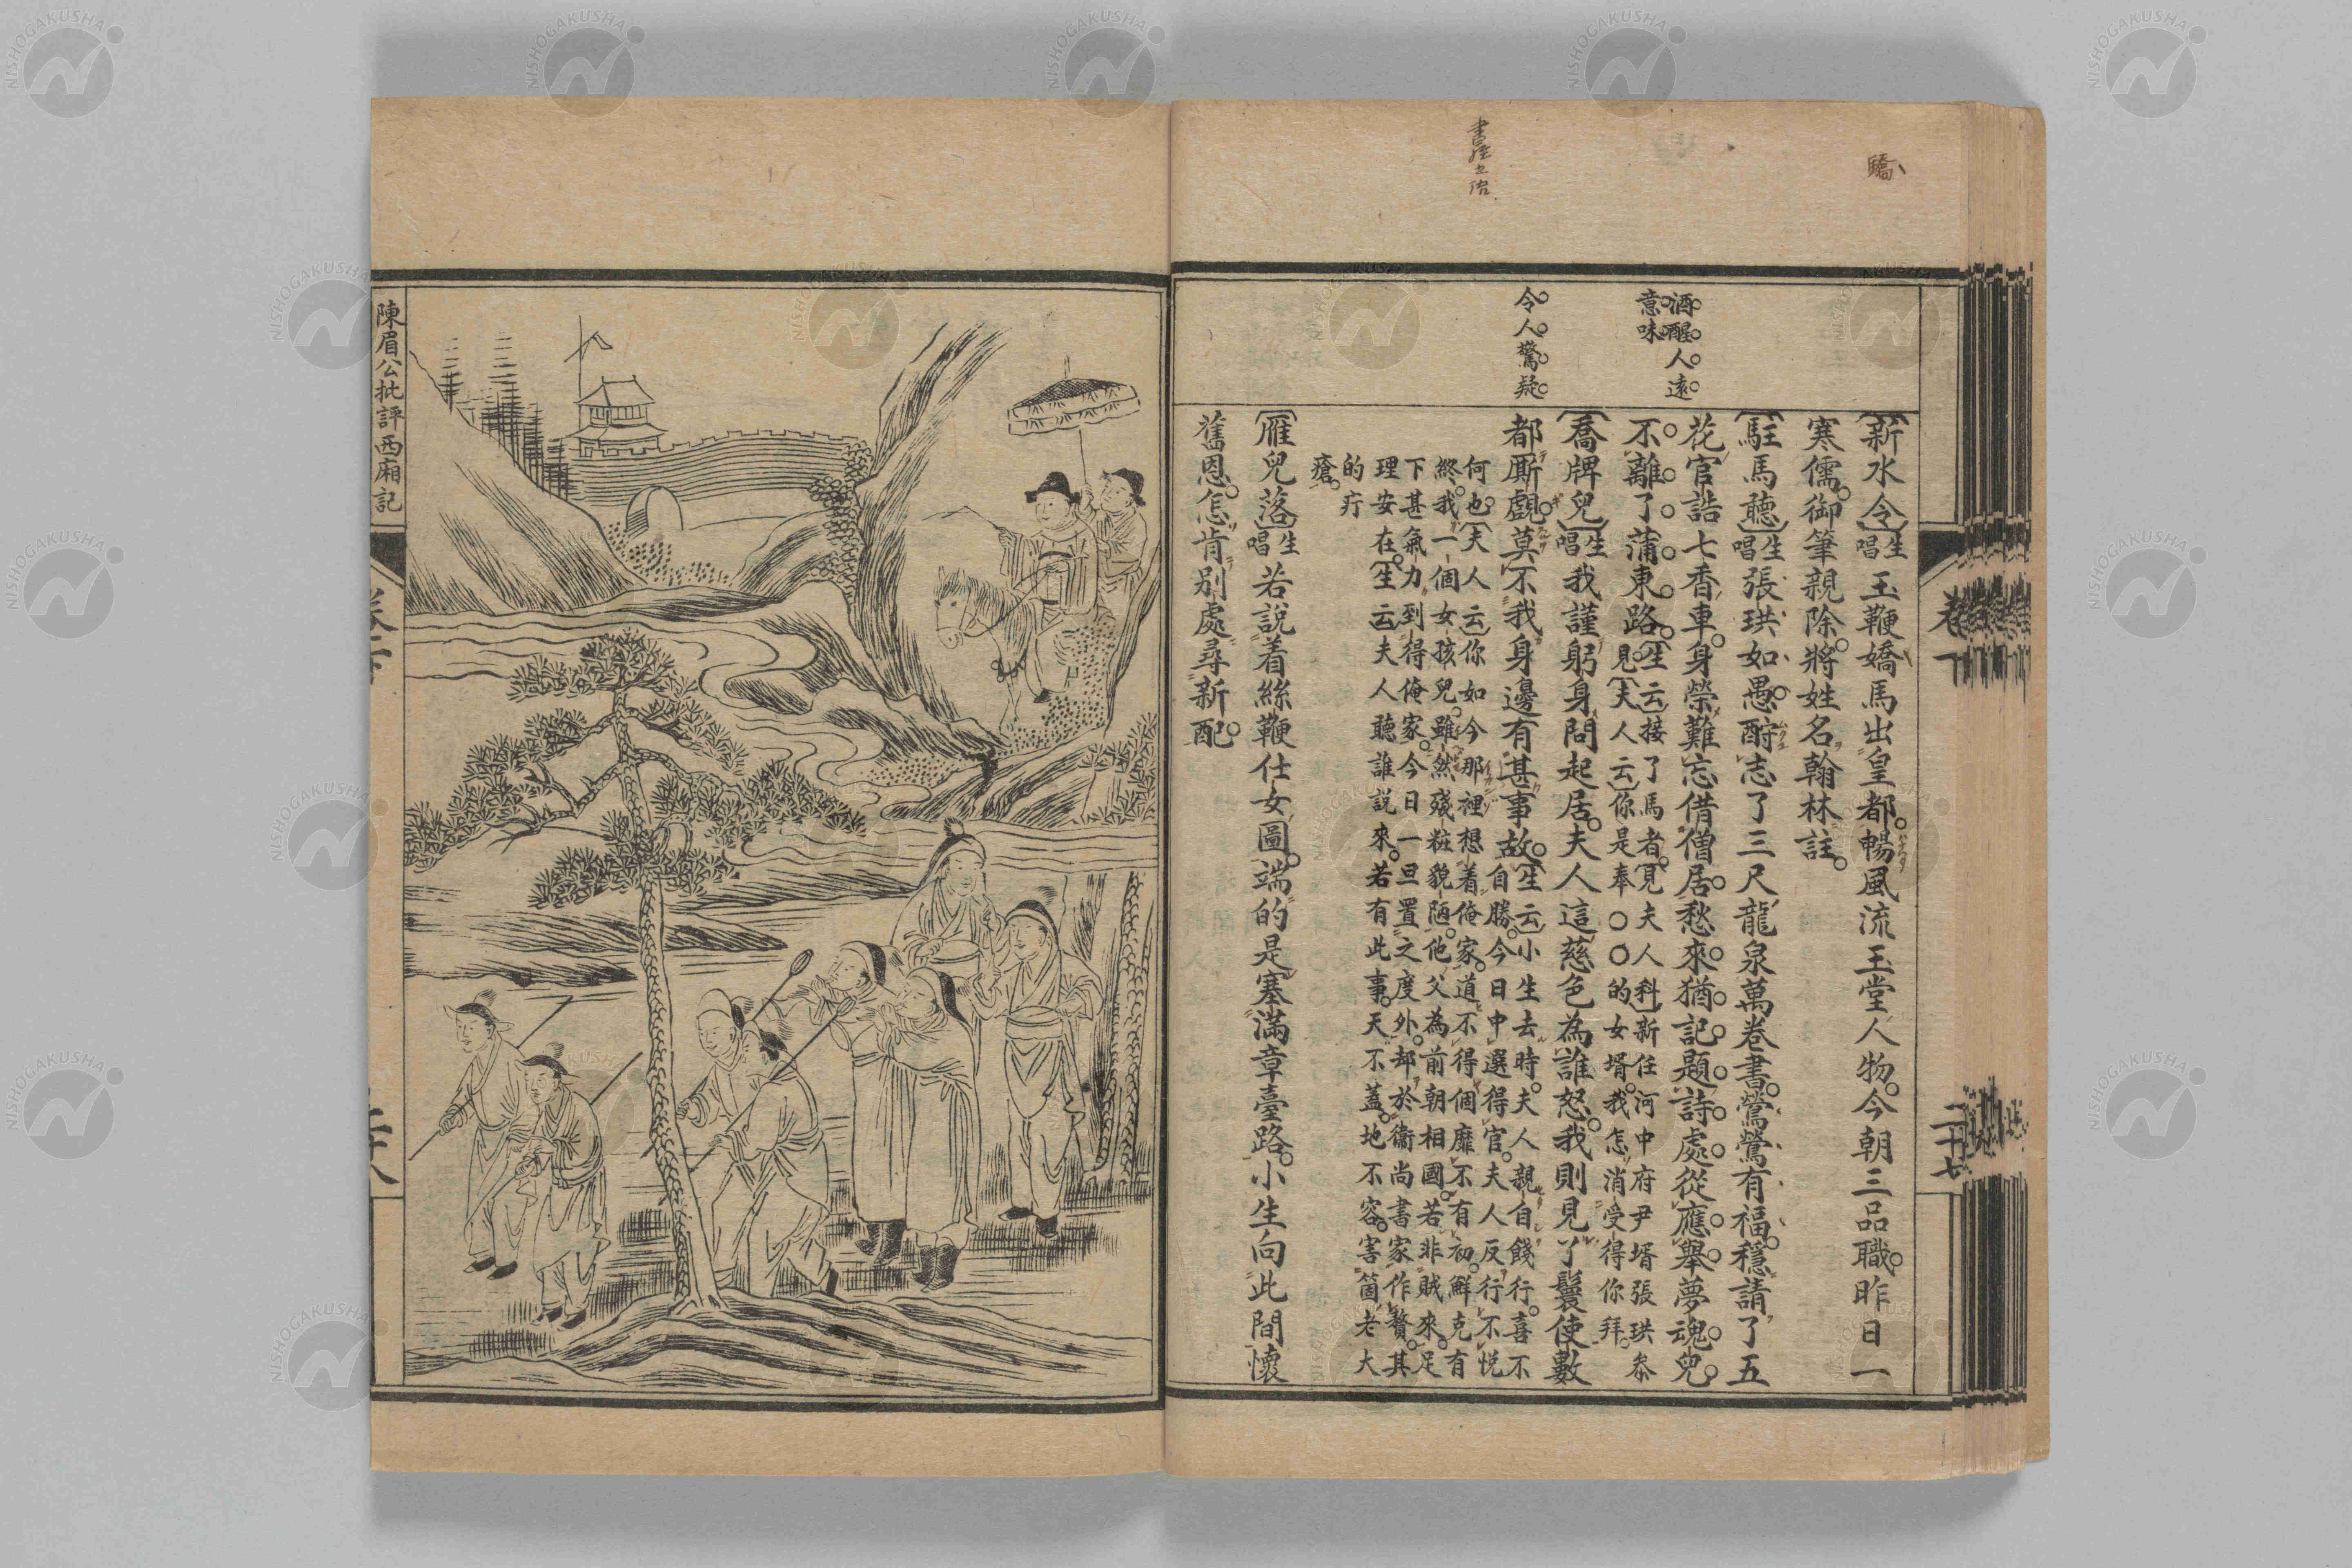 驕
酒醒人遠
意味
令人驚疑
【新水令】生唱玉鞭嬌馬出皇都。暢風流玉堂人物。今朝三品職。昨日一
寒儒。御筆親除。將姓名翰林註。
【駐馬聽】生唱張珙如愚。酧志了三尺龍泉萬卷書。鶯鶯有福。穩請了五
花官誥七香車。身榮難忘借僧居。愁來猶記題詩處。從應舉。夢魂兒
不離了蒲東路。〔生云〕接了馬者。〔見夫人科〕新任河中府尹壻張珙叅
見。〔夫人云〕你是奉○○的女壻。我怎消受得你拜。
【喬牌兒】生唱我謹躬身問起居。夫人這慈色為誰怒。我則見丫鬟使數
都厮覷。莫不我身邊有甚事故。〔生云〕小生去時。夫人親自餞行。喜不
自勝。今日中選得官。夫人反行不悅
何也。〔夫人云〕你如今那裡想着俺家。道不得個靡不有初。鮮克有
終。我一個女孩兒。雖然殘粧貌陋。他父為前朝相國。若非賊來。足
下甚氣力到得俺家。今日一旦置之度外。却於衞尚書家作贅。其
理安在。〔生云〕夫人聽誰說來。若有此事。天不蓋。地不容。害箇老大
的疔
瘡。
【雁兒落】生唱若說着絲鞭仕女圖。端的是塞滿章臺路。小生向此間懷
舊恩。怎肯別處尋新配。
卷下
二十七
陳眉公批評西廂記
NISHOGAKUSHA